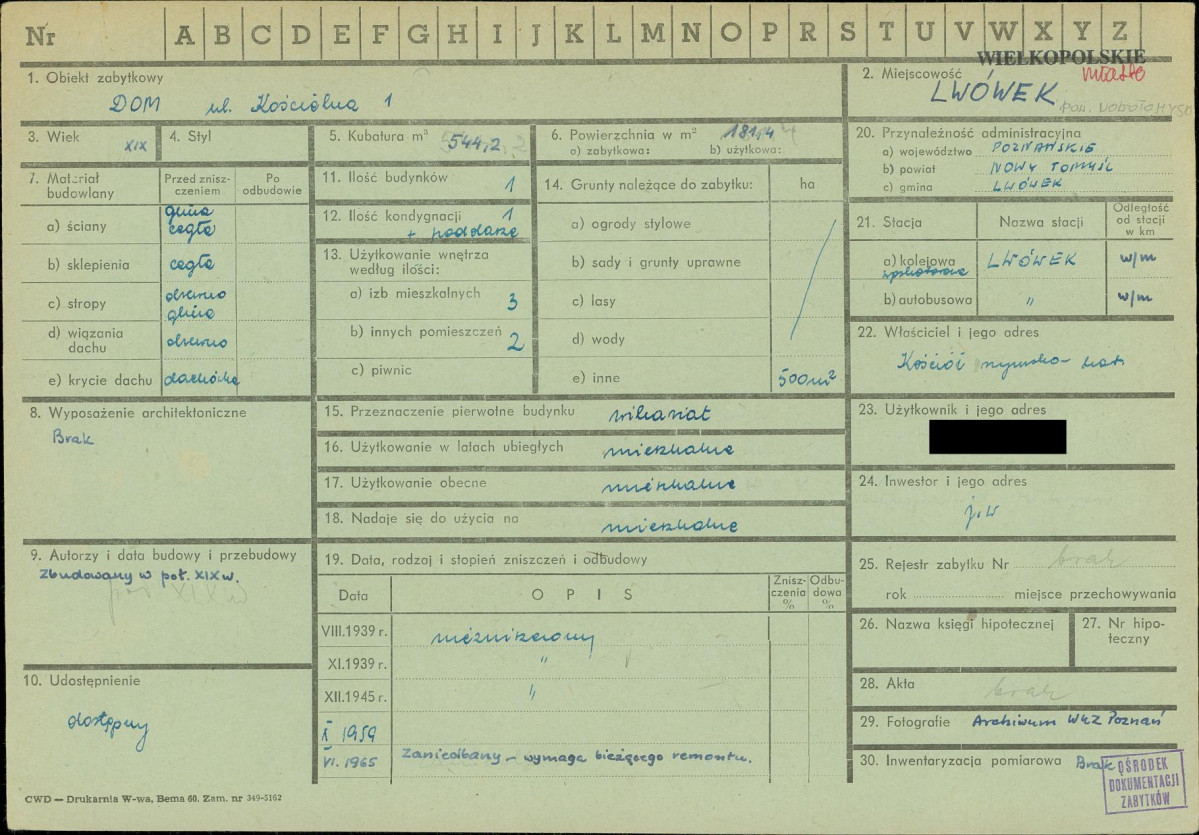 Nr A B C D E F G H I J K L M N O P R S T U V W X Y Z
WIELKOPOLSKIE
miasto
1. Obiekt zabytkowy
DOM ul. Kościelna 1
2. Miejscowość
LWÓWEK
3. Wiek XIX
4. Styl
5. Kubatura m³ 544,2
6. Powierzchnia w m² 181,4
a) zabytkowa: b) użytkowa:
7. Materiał budowlany
Przed zniszczeniem
Po odbudowie
a) ściany glina cegła
b) sklepienia cegła
c) stropy drewno glina
d) wiązania dachu drewno
e) krycie dachu dachówka
8. Wyposażenie architektoniczne
Brak
9. Autorzy i data budowy i przebudowy
Zbudowany w poł. XIX w.
10. Udostępnienie
dostępny
11. Ilość budynków 1
12. Ilość kondygnacji 1
+ poddasze
13. Użytkowanie wnętrza
według ilości:
a) izb mieszkalnych 3
b) innych pomieszczeń 2
c) piwnic
14. Grunty należące do zabytku: ha
a) ogrody stylowe
b) sady i grunty uprawne
c) lasy
d) wody
e) inne 500 m²
15. Przeznaczenie pierwotne budynku wikariat
16. Użytkowanie w latach ubiegłych mieszkalne
17. Użytkowanie obecne mieszkalne
18. Nadaje się do użycia na mieszkalne
19. Data, rodzaj i stopień zniszczeń i odbudowy
Data OPIS Zniszczenia % Odbudowa %
VIII.1939 r. niezniszczony
XI.1939 r. "
XII.1945 r. "
X 1959
VI. 1965 Zaniedbany – wymaga bieżącego remontu.
20. Przynależność administracyjna
a) województwo POZNAŃSKIE
b) powiat NOWY TOMYŚL
c) gmina LWÓWEK
21. Stacja Nazwa stacji Odległość od stacji w km
a) kolejowa LWÓWEK w/m
b) autobusowa " w/m
22. Właściciel i jego adres
Kościół rzymsko-kat.
23. Użytkownik i jego adres
24. Inwestor i jego adres
j.w
25. Rejestr zabytku Nr brak
rok miejsce przechowywania
26. Nazwa księgi hipotecznej
27. Nr hipoteczny
28. Akta brak
29. Fotografie Archiwum WKZ Poznań
30. Inwentaryzacja pomiarowa Brak
OŚRODEK
DOKUMENTACJI
ZABYTKÓW
CWD — Drukarnia W-wa, Bema 60. Zam. nr 349-5162